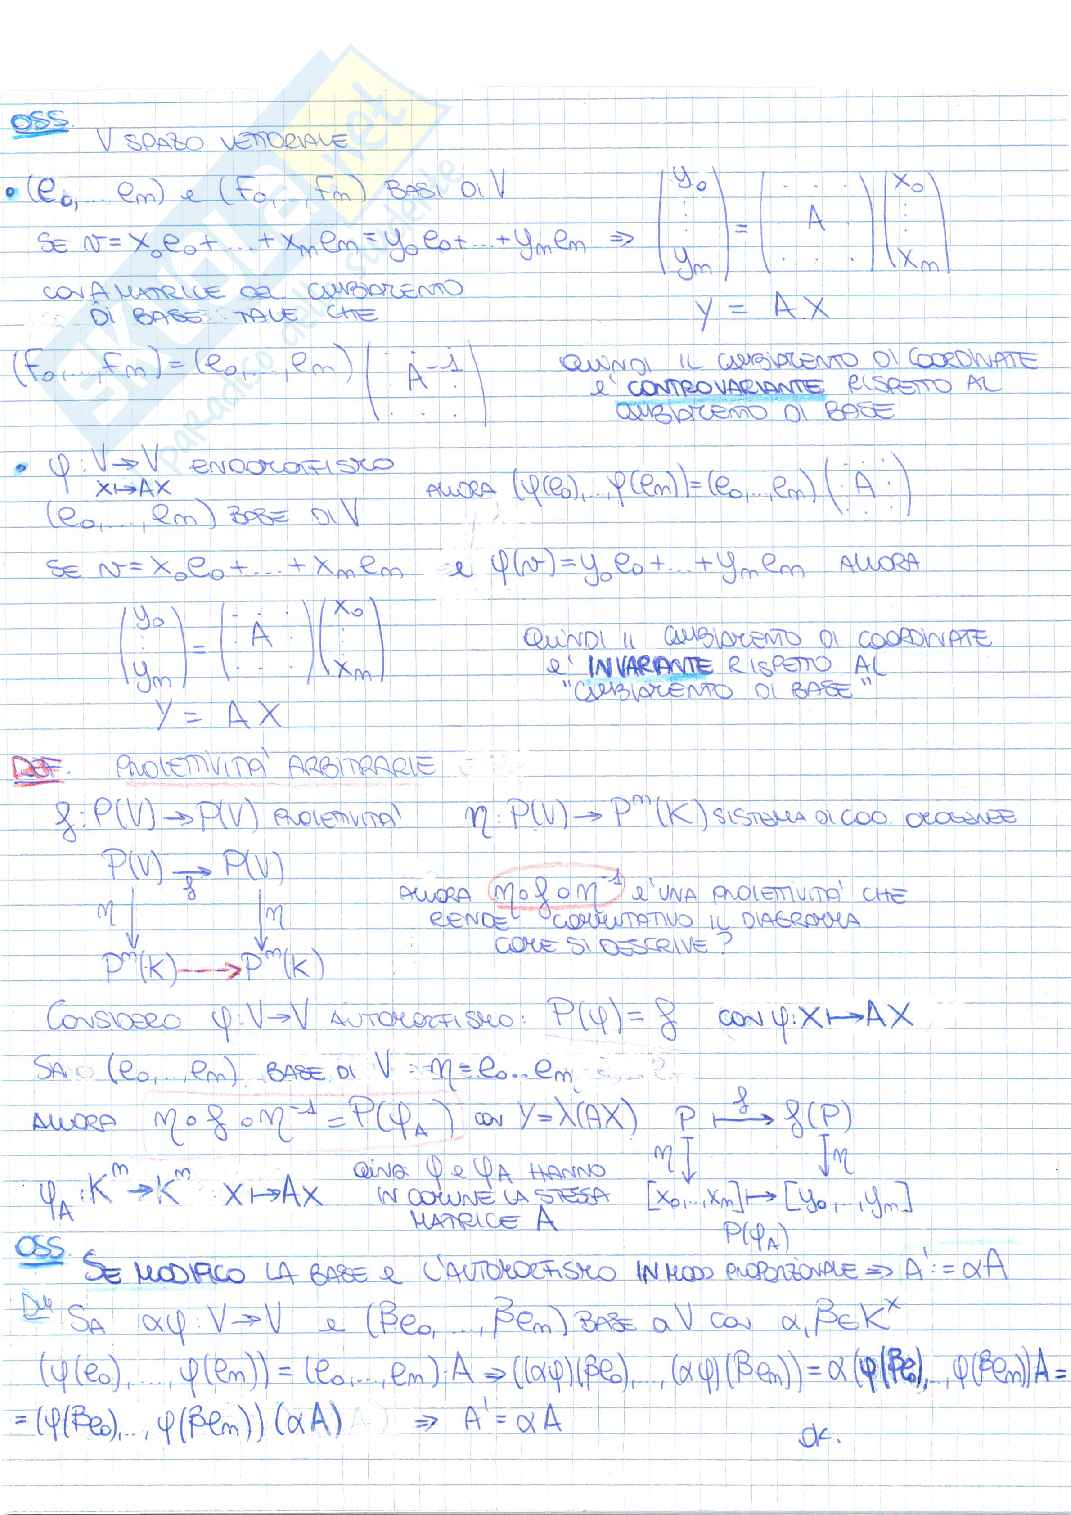 OSS.
V SPAZIO VETTORIALE
• (e₀,...,eₙ) e (f₀,...,fₙ) BASI DI V
SE v = x₀e₀+...+xₙeₙ = y₀e₀+...+yₙeₙ ⇒ (y₀ ⋮ yₙ) = (A) (x₀ ⋮ xₙ)
CON A MATRICE DEL CAMBIAMENTO
DI BASE TALE CHE
Y = AX
(f₀,...,fₙ) = (e₀,...,eₙ) (A⁻¹)
QUINDI IL CAMBIAMENTO DI COORDINATE
E' CONTROVARIANTE RISPETTO AL
CAMBIAMENTO DI BASE
• φ: V → V ENDOMORFISMO
X ↦ AX
ALLORA (φ(e₀),...,φ(eₙ)) = (e₀,...,eₙ) (A)
(e₀,...,eₙ) BASE DI V
SE v = x₀e₀+...+xₙeₙ e φ(v) = y₀e₀+...+yₙeₙ ALLORA
(y₀ ⋮ yₙ) = (A) (x₀ ⋮ xₙ)
Y = AX
QUINDI IL CAMBIAMENTO DI COORDINATE
E' INVARIANTE RISPETTO AL
"CAMBIAMENTO DI BASE"
DEF. PROIETTIVITA' ARBITRARIE
f: P(V) → P(V) PROIETTIVITA' η: P(V) → Pⁿ(K) SISTEMA DI COO. OMOGENEE
P(V) →f P(V)
η ↓ ↓ η
Pⁿ(K) → Pⁿ(K)
ALLORA η∘f∘η⁻¹ E' UNA PROIETTIVITA' CHE
RENDE COMMUTATIVO IL DIAGRAMMA
COME SI DESCRIVE?
CONSIDERO φ: V → V AUTOMORFISMO: P(φ) = f CON φ: X ↦ AX
SIA (e₀,...,eₙ) BASE DI V η = e₀...eₙ
ALLORA η∘f∘η⁻¹ = P(φ_A) CON Y = λ(AX)
P ↦f f(P)
η ↓ ↓ η
[x₀,..,xₙ] ↦ [y₀,..,yₙ]
P(φ_A)
φ_A: Kⁿ → Kⁿ X ↦ AX
QUINDI φ e φ_A HANNO
IN COMUNE LA STESSA
MATRICE A
OSS.
SE MODIFICO LA BASE e L'AUTOMORFISMO IN MODO PROPORZIONALE ⇒ A' := αA
Dim SIA αφ: V → V e (βe₀,...,βeₙ) BASE DI V CON α,β ∈ Kˣ
(φ(e₀),...,φ(eₙ)) = (e₀,...,eₙ)·A ⇒ ((αφ)(βe₀),...,(αφ)(βeₙ)) = α(φ(βe₀),..,φ(βeₙ))A =
= (φ(βe₀),...,φ(βeₙ))(αA) ⇒ A' = αA
ok.
SKUOLA.net